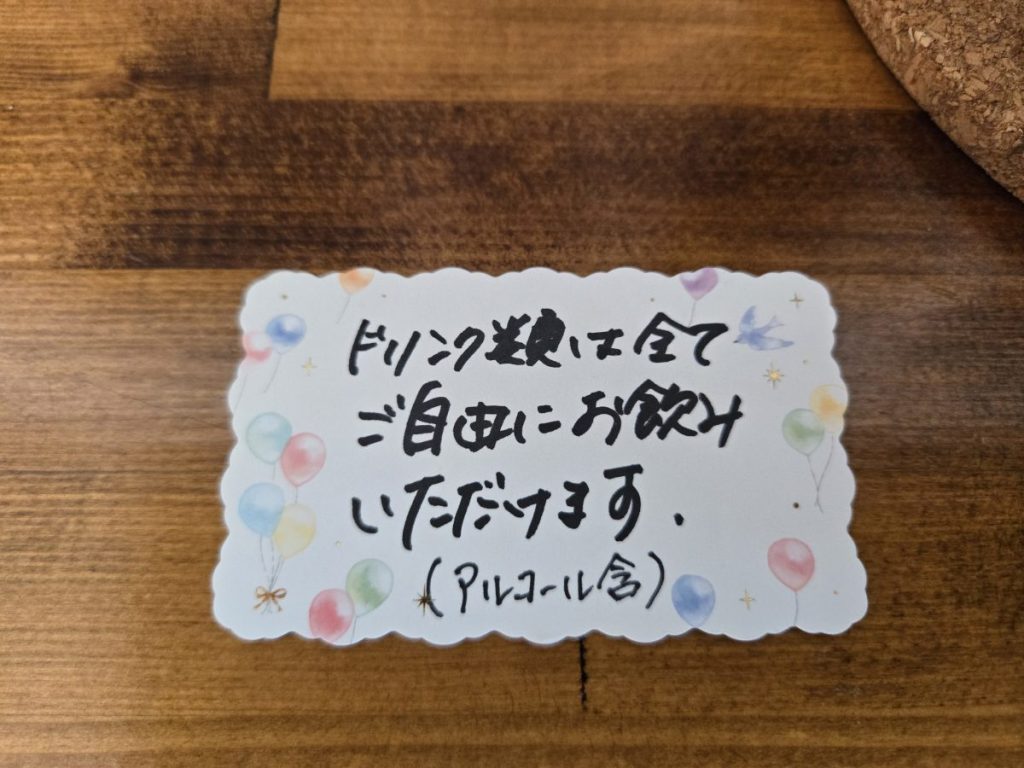 ドリンク類は全て
ご自由にお飲み
いただけます.
(アルコール含)